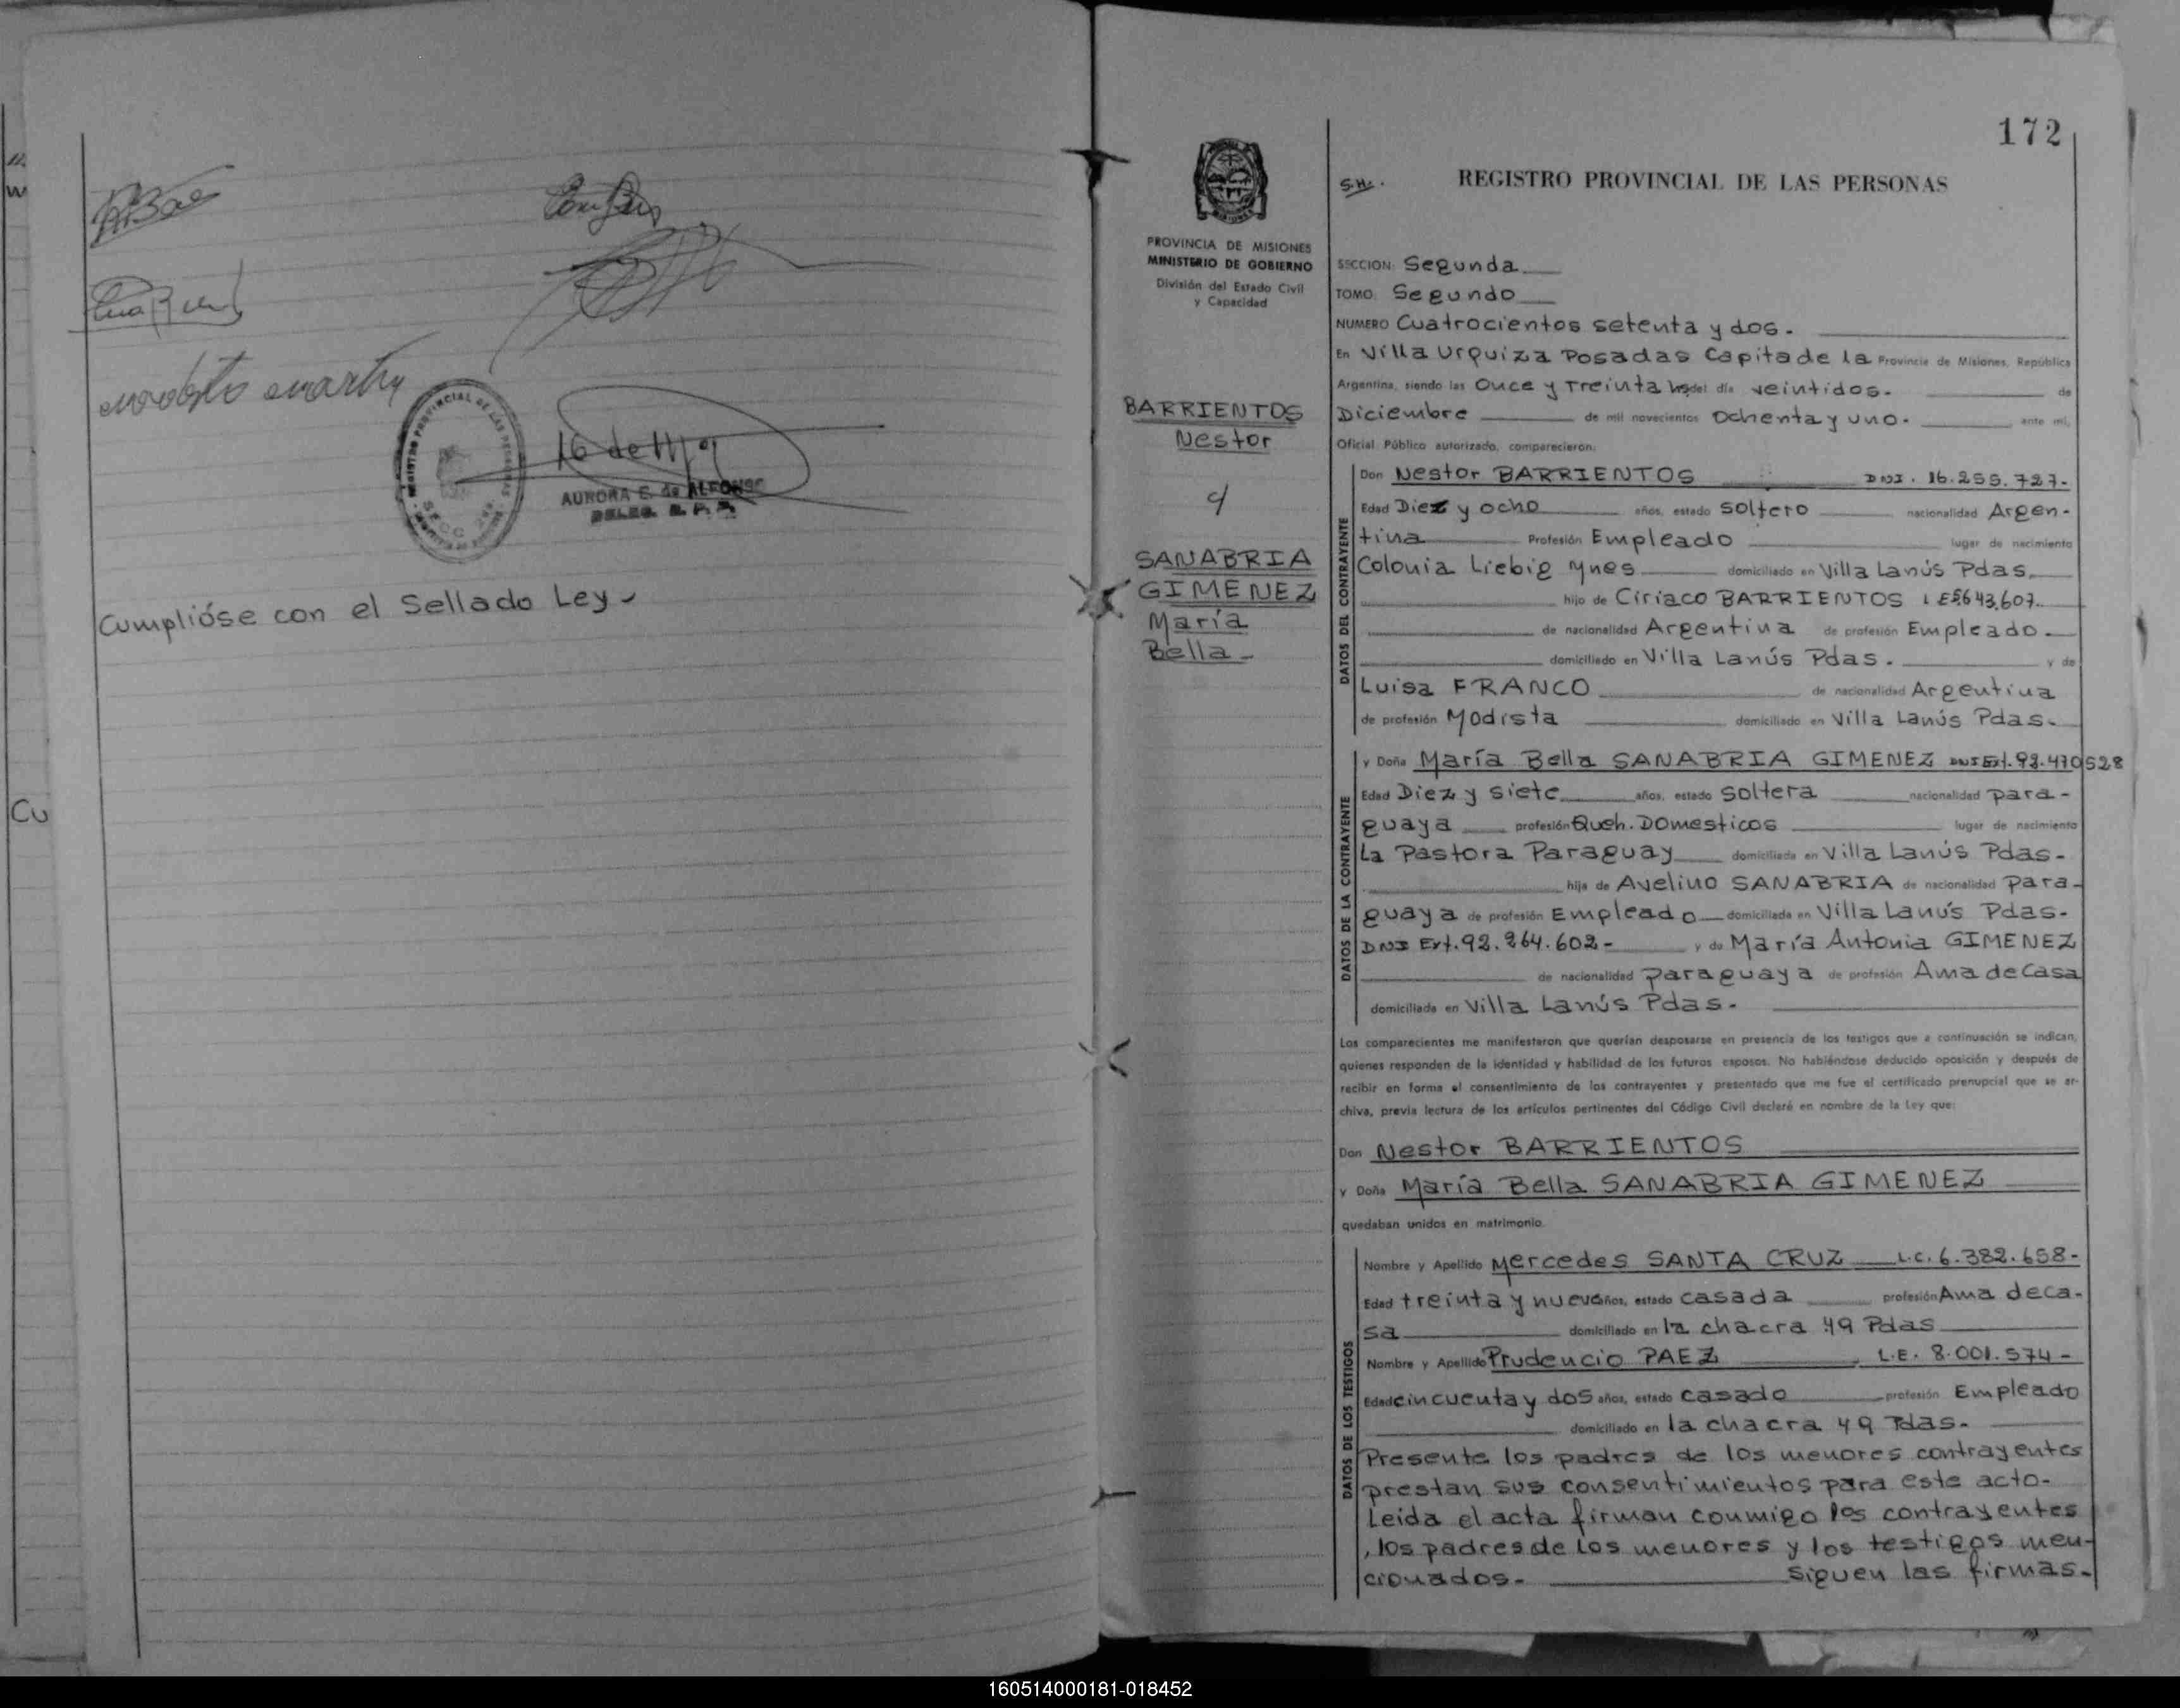 Cumplióse con el Sellado Ley-
16 de
AURORA E. de ALFONSO
DELEG. R. P. P.
Cu
172
S.H.
REGISTRO PROVINCIAL DE LAS PERSONAS
PROVINCIA DE MISIONES
MINISTERIO DE GOBIERNO
División del Estado Civil
y Capacidad
BARRIENTOS
Nestor
c/
SANABRIA
GIMENEZ
María
Bella-
SECCION: Segunda
TOMO: Segundo
NUMERO Cuatrocientos setenta y dos.
En Villa Urquiza Posadas Capita de la Provincia de Misiones, República
Argentina, siendo las Once y Treinta hs del día veintidos. de
Diciembre de mil novecientos Ochenta y uno. ante mí,
Oficial Público autorizado, comparecieron:
DATOS DEL CONTRAYENTE
Don Nestor BARRIENTOS DNI. 16.255.727-
Edad Diez y ocho años, estado Soltero nacionalidad Argen-
tina Profesión Empleado lugar de nacimiento
Colonia Liebig Mnes domiciliado en Villa Lanús Pdas.
hijo de Ciriaco BARRIENTOS LE 5.643.607.
de nacionalidad Argentina de profesión Empleado.
domiciliado en Villa Lanús Pdas. y de
Luisa FRANCO de nacionalidad Argentina
de profesión Modista domiciliado en Villa Lanús Pdas.
DATOS DE LA CONTRAYENTE
y Doña María Bella SANABRIA GIMENEZ DNI Ext. 92.470528
Edad Diez y siete años, estado Soltera nacionalidad para-
guaya profesión Queh. Domesticos lugar de nacimiento
La Pastora Paraguay domiciliada en Villa Lanús Pdas-
hija de Avelino SANABRIA de nacionalidad para-
guaya de profesión Empleado domiciliado en Villa Lanús Pdas-
DNI Ext. 92.264.602- y de María Antonia GIMENEZ
de nacionalidad paraguaya de profesión Ama de Casa
domiciliada en Villa Lanús Pdas-
Los comparecientes me manifestaron que querían desposarse en presencia de los testigos que a continuación se indican,
quienes responden de la identidad y habilidad de los futuros esposos. No habiéndose deducido oposición y después de
recibir en forma el consentimiento de los contrayentes y presentado que me fue el certificado prenupcial que se ar-
chiva, previa lectura de los artículos pertinentes del Código Civil declaré en nombre de la Ley que:
Don Nestor BARRIENTOS
y Doña María Bella SANABRIA GIMENEZ
quedaban unidos en matrimonio.
DATOS DE LOS TESTIGOS
Nombre y Apellido Mercedes SANTA CRUZ L.C. 6.382.658-
Edad treinta y nueve años, estado casada profesión Ama de ca-
sa domiciliado en la chacra 49 Pdas
Nombre y Apellido Prudencio PAEZ L.E. 8.001.574-
Edad cincuenta y dos años, estado casado profesión Empleado
domiciliado en la chacra 49 Pdas-
Presente los padres de los menores contrayentes
prestan sus consentimientos para este acto-
Leida el acta firman conmigo los contrayentes
, los padres de los menores y los testigos men-
cionados- Siguen las firmas-
160514000181-018452